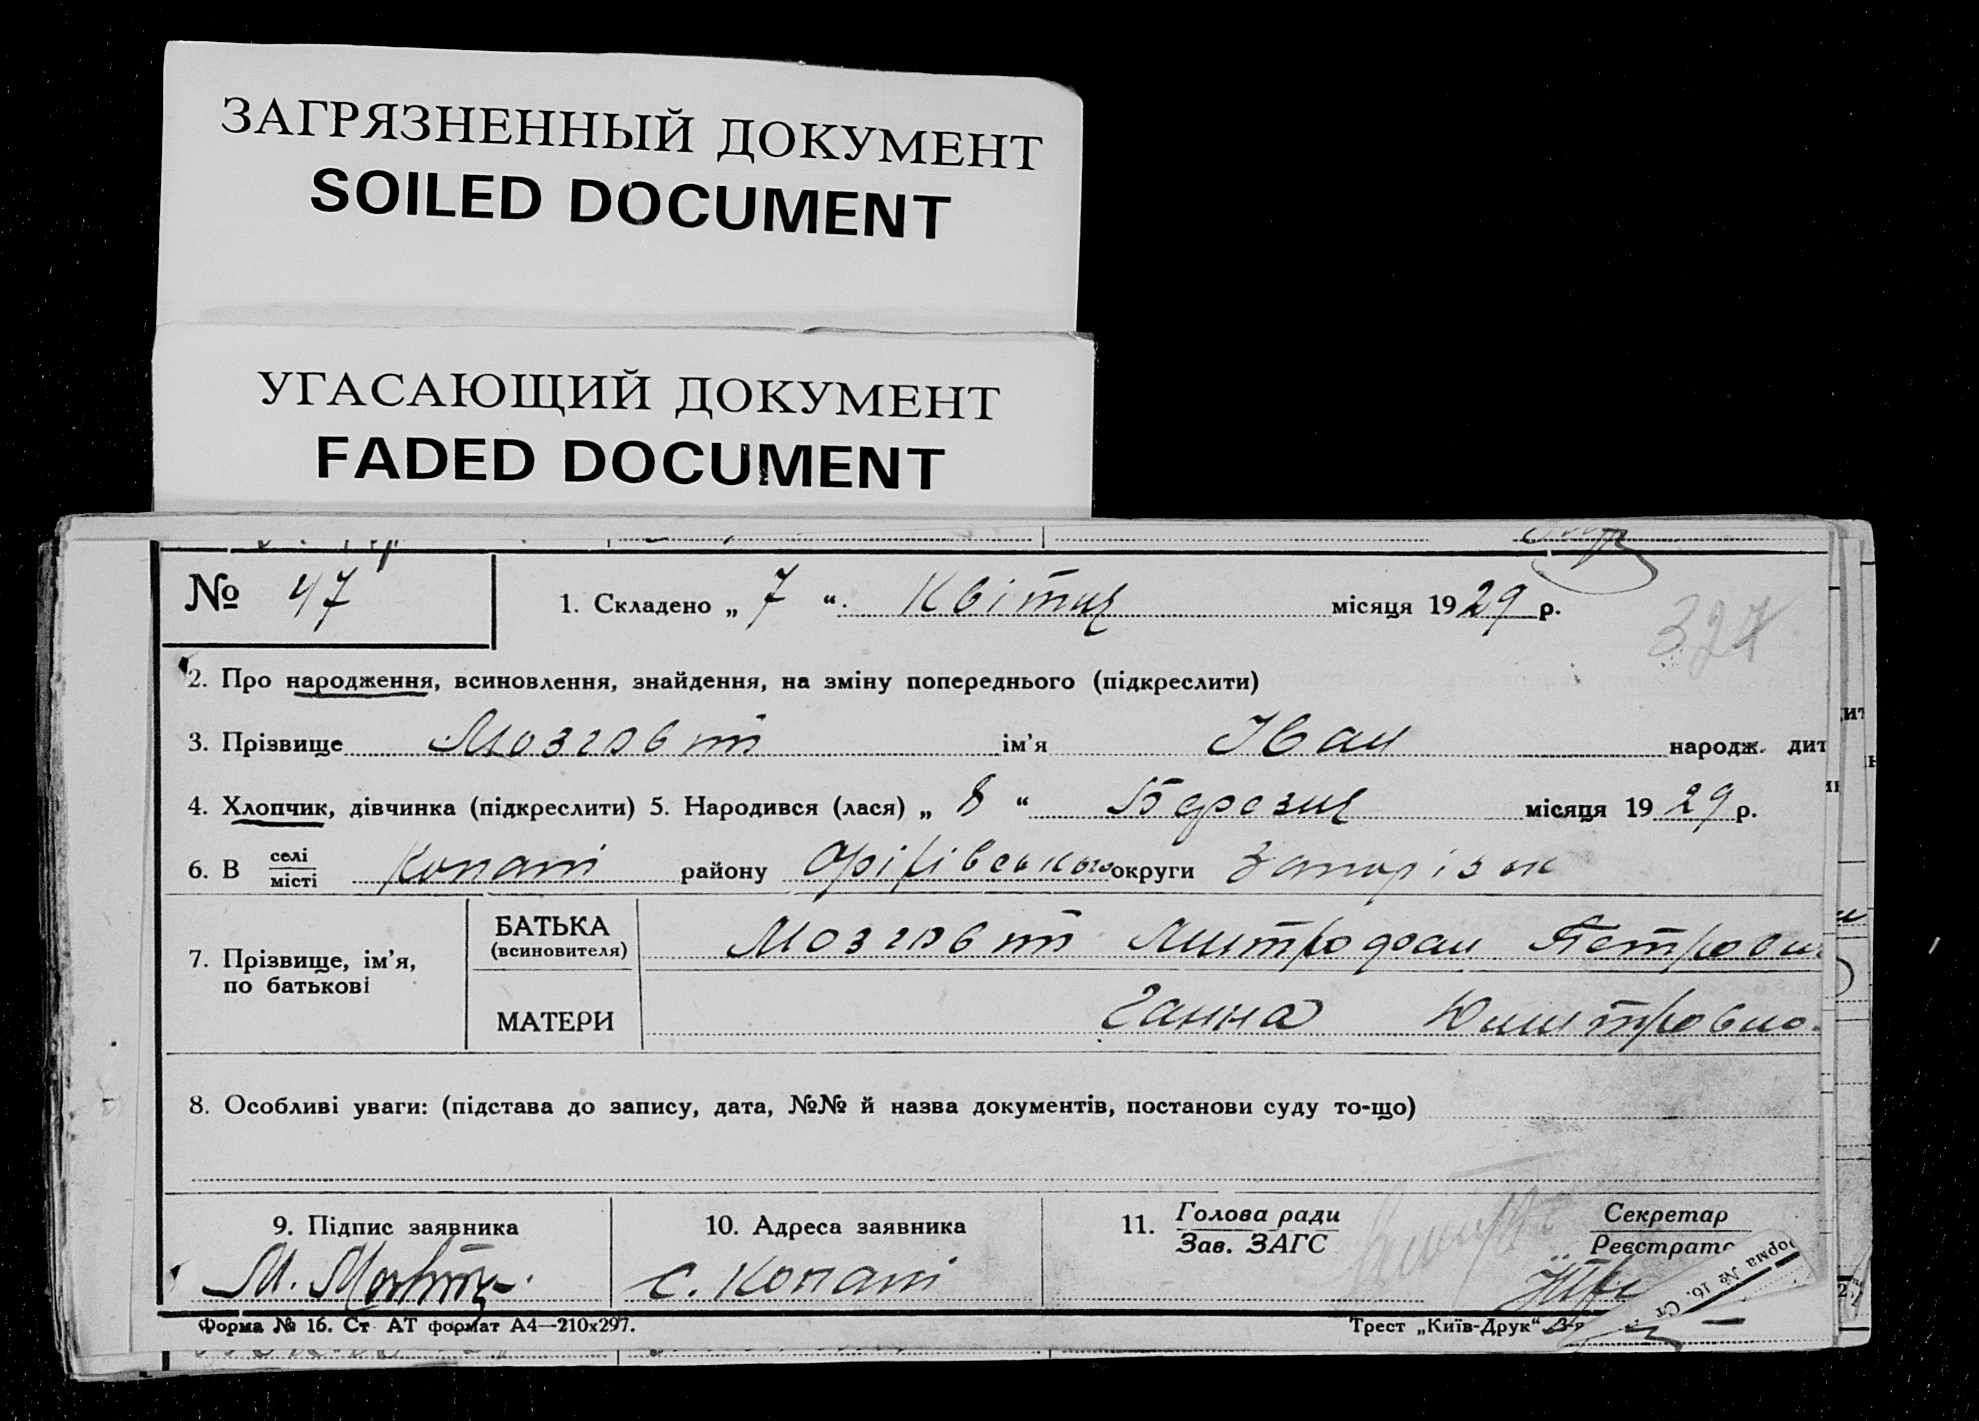 ЗАГРЯЗНЕННЫЙ ДОКУМЕНТ
SOILED DOCUMENT
УГАСАЮЩИЙ ДОКУМЕНТ
FADED DOCUMENT
№ 47 1. Складено „ 7 “ Квітня місяця 1929 р.
327
2. Про народження, всиновлення, знайдення, на зміну попереднього (підкреслити)
3. Прізвище Мозговий ім’я Іван народж. дит
4. Хлопчик, дівчинка (підкреслити) 5. Народився (лася) „ 8 “ Березня місяця 1929 р.
6. В селі/місті Копані району Оріхівського округи Запорізьк
7. Прізвище, ім’я, по батькові
БАТЬКА (всиновителя) Мозговий Митрофан Петрови
МАТЕРИ Ганна Дмитровно
8. Особливі уваги: (підстава до запису, дата, №№ й назва документів, постанови суду то-що)
9. Підпис заявника 10. Адреса заявника 11. Голова ради / Зав. ЗАГС Секретар / Реєстрато
М. с. Копані
Форма № 16. Ст АТ формат А4—210x297. Трест „Київ-Друк“ 3-я
орма № 16. Ст